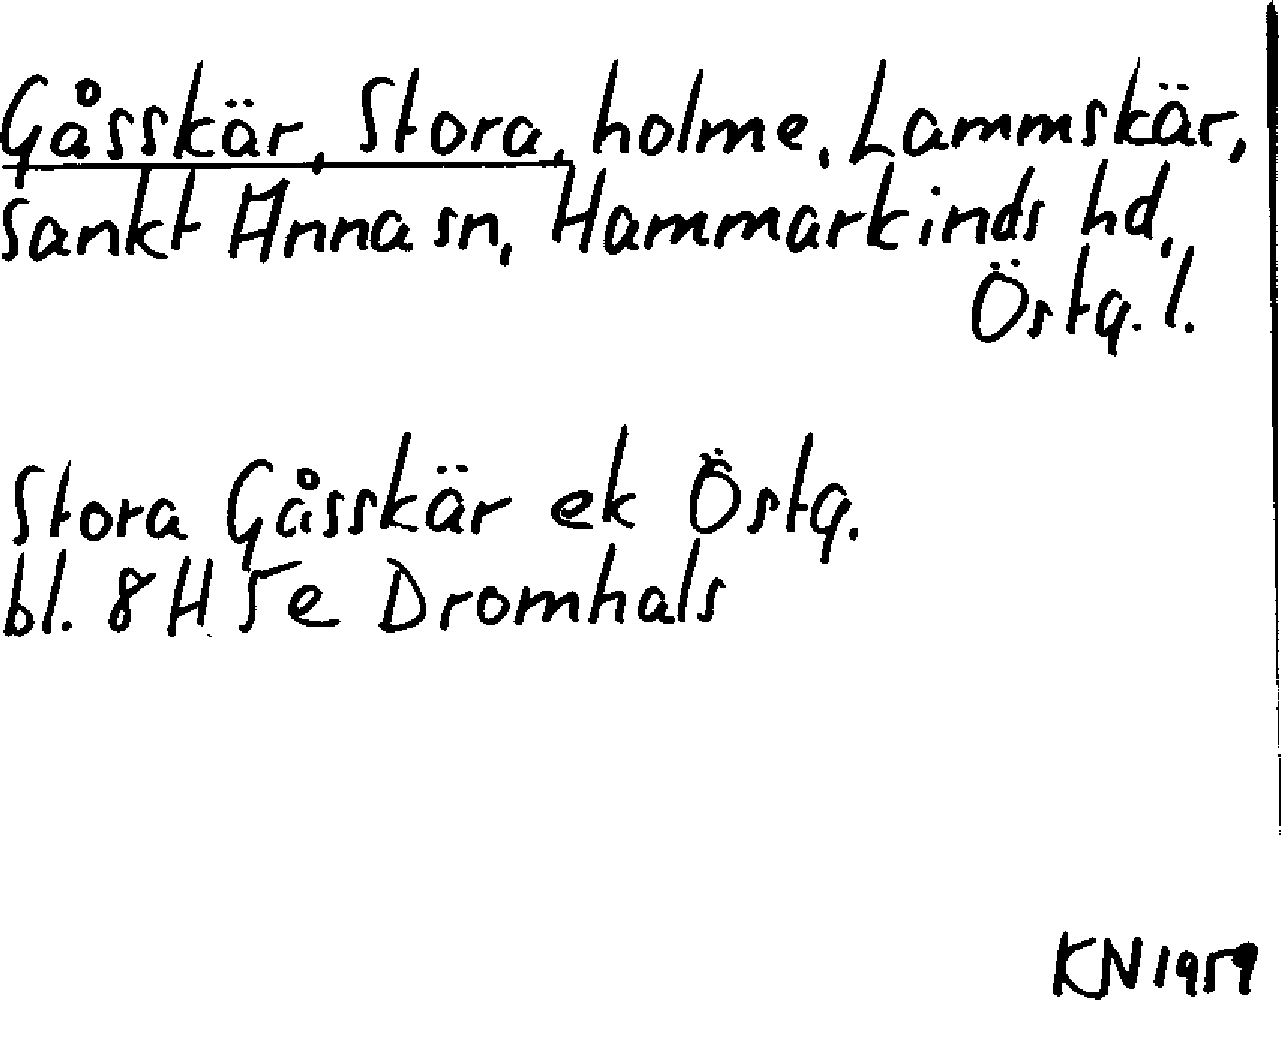 Gåsskär, Stora, holme, Lammskär,
Sankt Anna sn, Hammarkinds hd,
Östg. l.
Stora Gåsskär ek Östg.
bl. 8 H 5e Dromhals
KN 1959